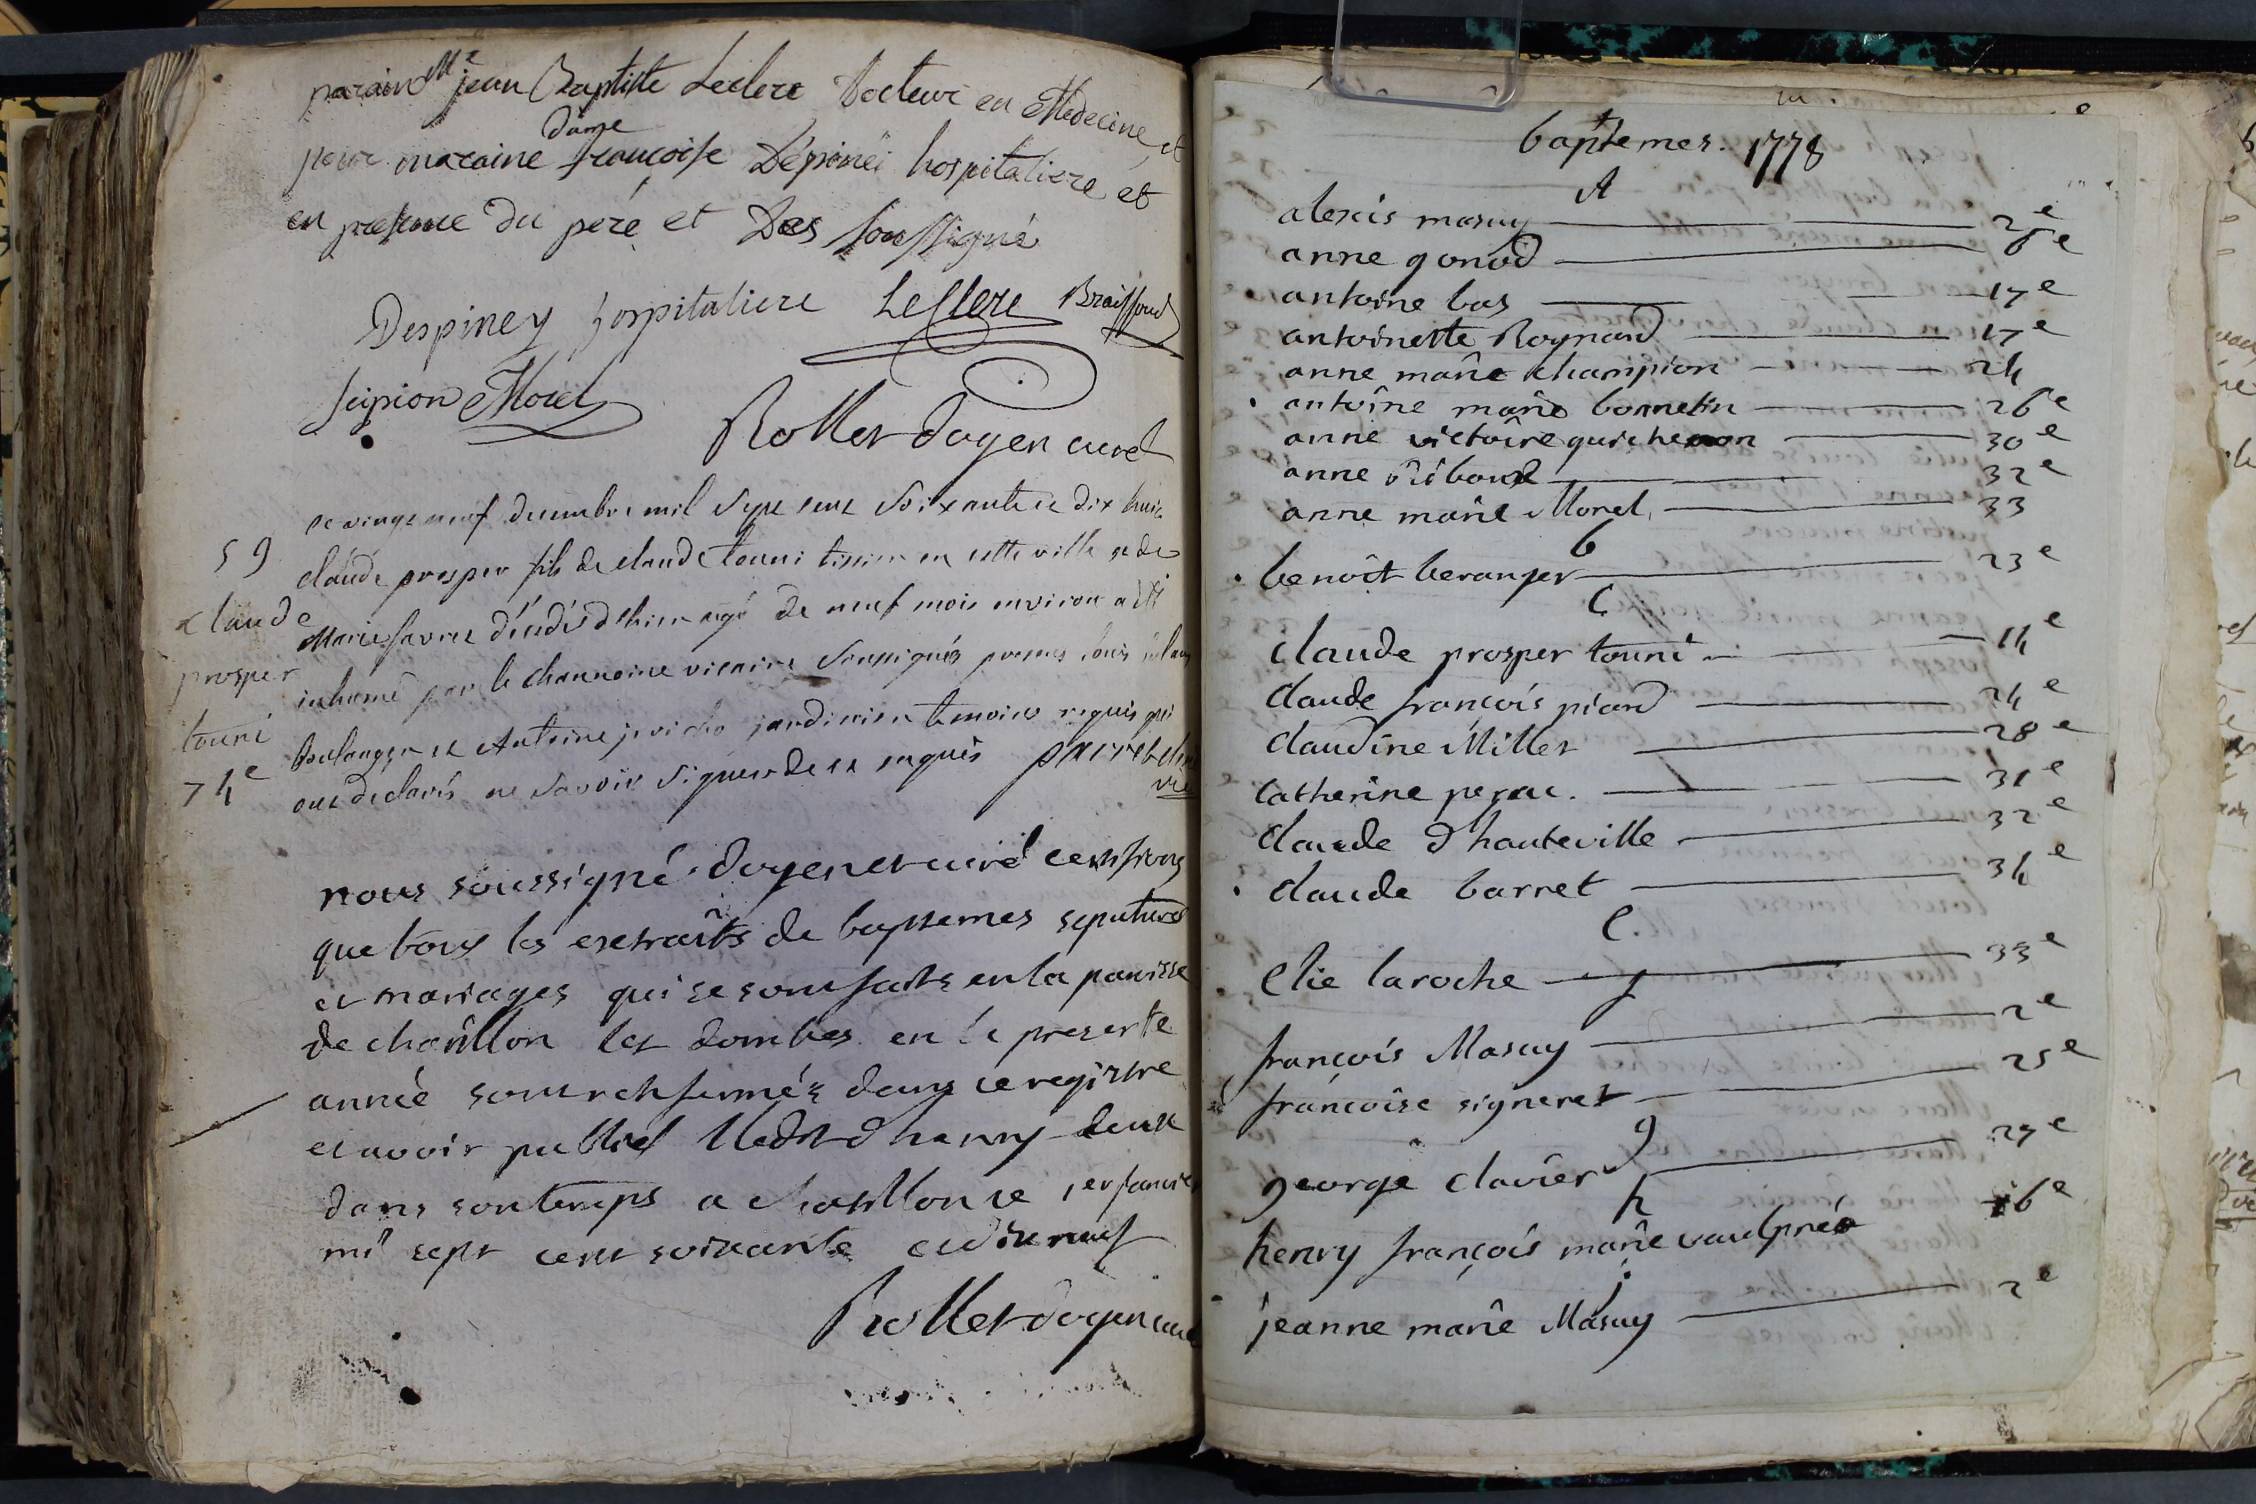 parain Mr jean Baptiste Leclerc Docteur en Medecine et
pour maraine dame francoise Dépinëi hospitaliere et
en presence du peré et Des soussigné
Despiney hospitaliere LeClerc Braissoud
scipion Morel
Rollet doyen curé
59
claude
prosper
touni
74e
ce vingt neuf decembre mil sept cent soixante et dix huit
claude prosper fils de claude touni tissier en cette ville et de
Marie favre décédé d'hier agé de neuf mois environ a été
inhumé par le channoine vicaire soussignés presens louis
boulanger et Antoine jardinier temoins requis qui
ont declarés ne savoir signer de ce enquis
nous soussigné doyen et curé certifions
que tous les extraits de baptemes sepultures
et mariages qui se sont faits en la paroisse
de chatillon les dombes en la presente
année sont renfermés dans ce registre
et avoir publié l'edit d'henry deux
dans son temps a chatillon ce 1er janvier
mil sept cent soixante et dix neuf
Rollet doyen curé
baptemes. 1778
A
alexis masuy 2e
anne gonod 6e
antoine bas 17e
antoinette Roynard 17e
anne marie champion 24
antoine marie bonnetin 26e
anne victoire guichenon 30e
anne Riboud 32e
anne marie Morel 33
b
benoit beranger 23e
C
claude prosper touni 14e
claude francois piard 24e
claudine Millet 28e
catherine perrac. 31e
claude d'hauteville 32e
claude barret 34e
e.
elie laroche 33e
f
francois Masuy 2e
francoise signeret 25e
g
george clavier 27e
h
henry francois marie vaulpré 16e
j
jeanne marie Masuy 2e